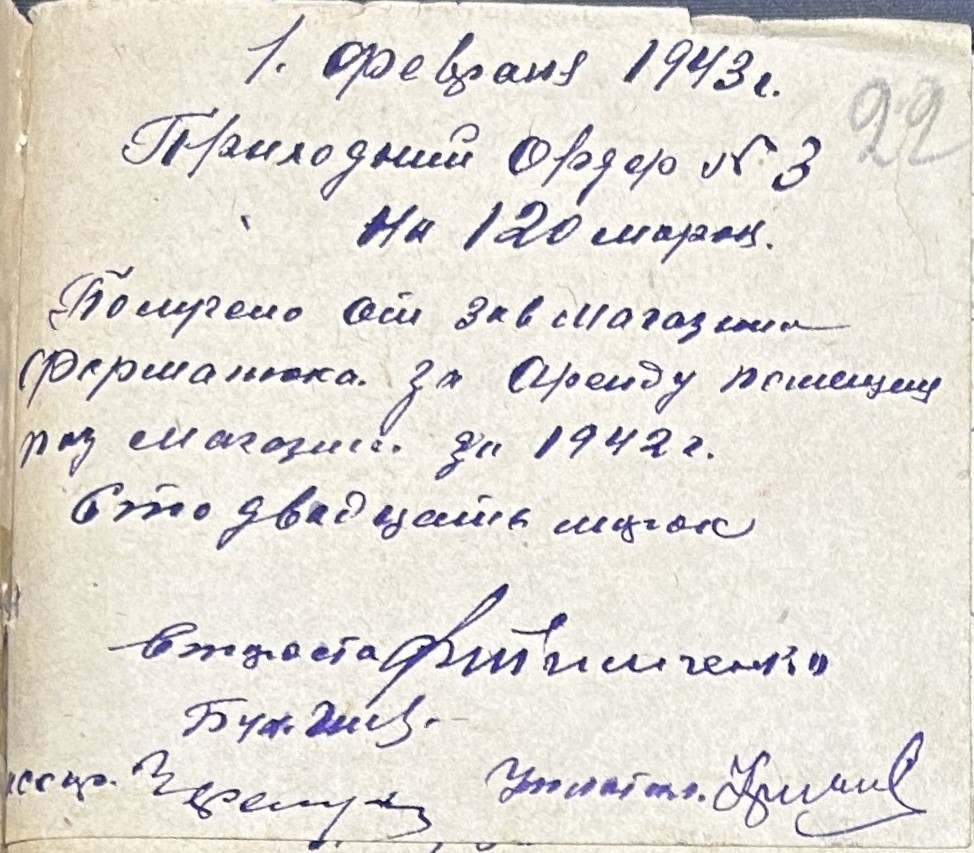 1. февраля 1943 г.
22
Приходный Ордер № 3
На 120 марок.
Получено от зав магазина
Ферманюка. За Аренду помещен
под магазин. за 1942 г.
Сто двадцать марок
Староста
Бух.
Уплатил.